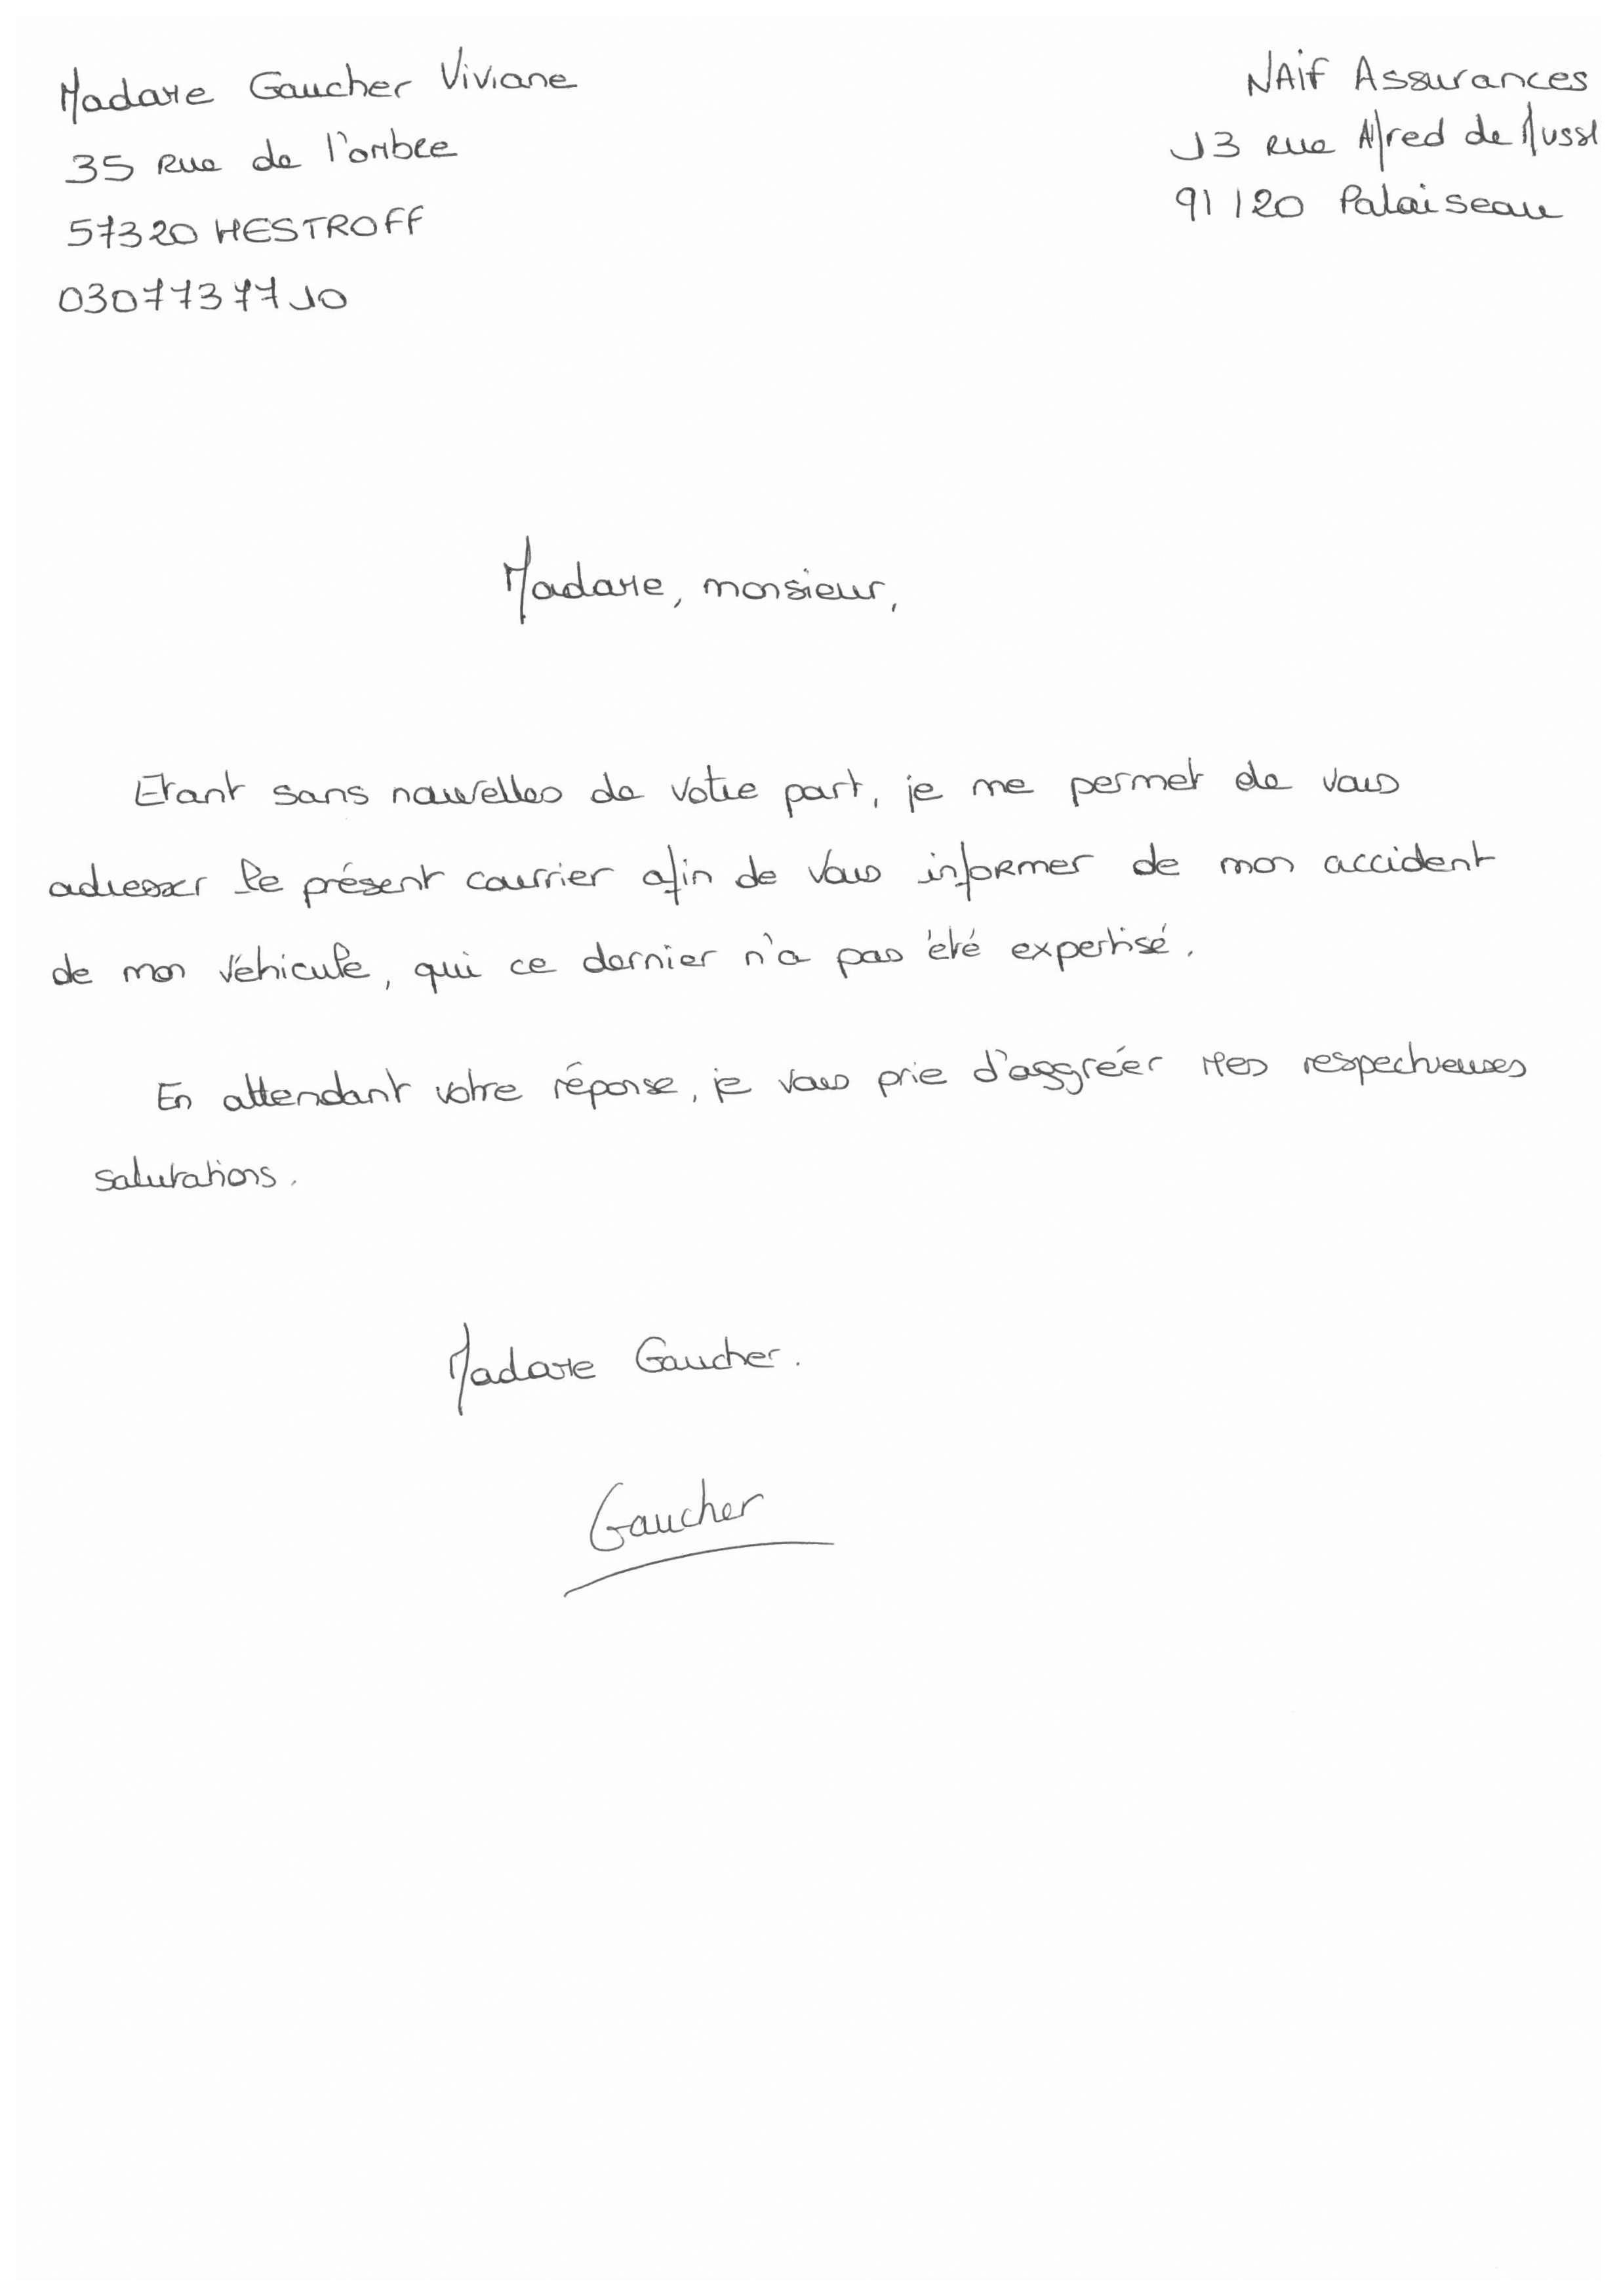 Madame Gaucher Viviane
35 Rue de l'ombre
57320 HESTROFF
0307737710
NAIF Assurances
13 rue Alfred de Muss
91120 Palaiseau
Madame, monsieur,
Etant sans nouvelles de votre part, je me permet de vous
adresser le présent courrier afin de vous informer de mon accident
de mon véhicule, qui ce dernier n'a pas été expertisé.
En attendant votre réponse, je vous prie d'aggréer mes respectueuses
salutations.
Madame Gaucher.
Gaucher